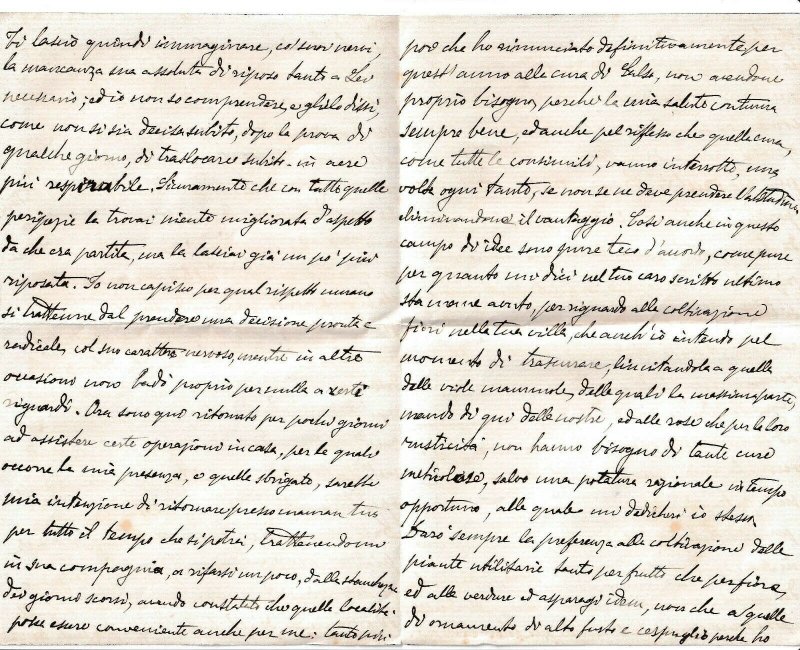 Ti lascio quindi immaginare, co' suoi nervi,
la mancanza sua assoluta di riposo tanto a Lei
necessario; ed io non so comprendere, e glielo dissi,
come non si sia decisa subito, dopo la prova di
qualche giorno, di traslocare subito in aere
più respirabile. Sicuramente che con tutte quelle
peripezie la trovai niente migliorata d'aspetto
da che era partita, ma la lasciai già un po' più
riposata. Io non capisco per qual rispetto umano
si trattenne dal prendere una decisione pronta e
radicale, col suo carattere nervoso, mentre in altre
occasioni non badò proprio per nulla a certi
riguardi. Ora sono qui ritornato per pochi giorni
ad assistere certe operazioni in casa, per le quali
occorre la mia presenza, e quelle sbrigate, sarebbe
mia intenzione di ritornare presso maman tua
per tutto il tempo che si potrà, trattenendomi
in sua compagnia, a rifarsi un poco, dalla stanchezza
dei giorni scorsi, avendo constatato che quelle località
posse essere conveniente anche per me: tanto più
poi che ho rinunciato definitivamente per
quest'anno alla cura di Salso, non avendone
proprio bisogno, perchè la mia salute continua
sempre bene, ed anche pel riflesso che quelle cure,
come tutte le consimili, vanno interrotte, una
volta ogni tanto, se non se ne deve prendere l'abitudine,
eliminandone il vantaggio. Così anche in questo
campo di idee sono pure teco d'accordo, come pure
per quanto mi dici nel tuo caro scritto ultimo
stamane avuto, per riguardo alla coltivazione
fiori nella tua villa, che anch'io intendo pel
momento di trascurare, limitandola a quella
delle viole mammole, delle quali la massima parte,
mando di qui dalle nostre, ed alle rose che per la loro
rusticità, non hanno bisogno di tante cure
meticolose, salvo una potatura razionale in tempo
opportuno, alla quale mi dedicherò io stesso.
Darò sempre la preferenza alla coltivazione delle
piante utilitarie tanto per frutto che per fiore,
ed alle verdure ed asparagi idem, non che a quelle
di ornamento di alto fusto e cespuglio perchè ho